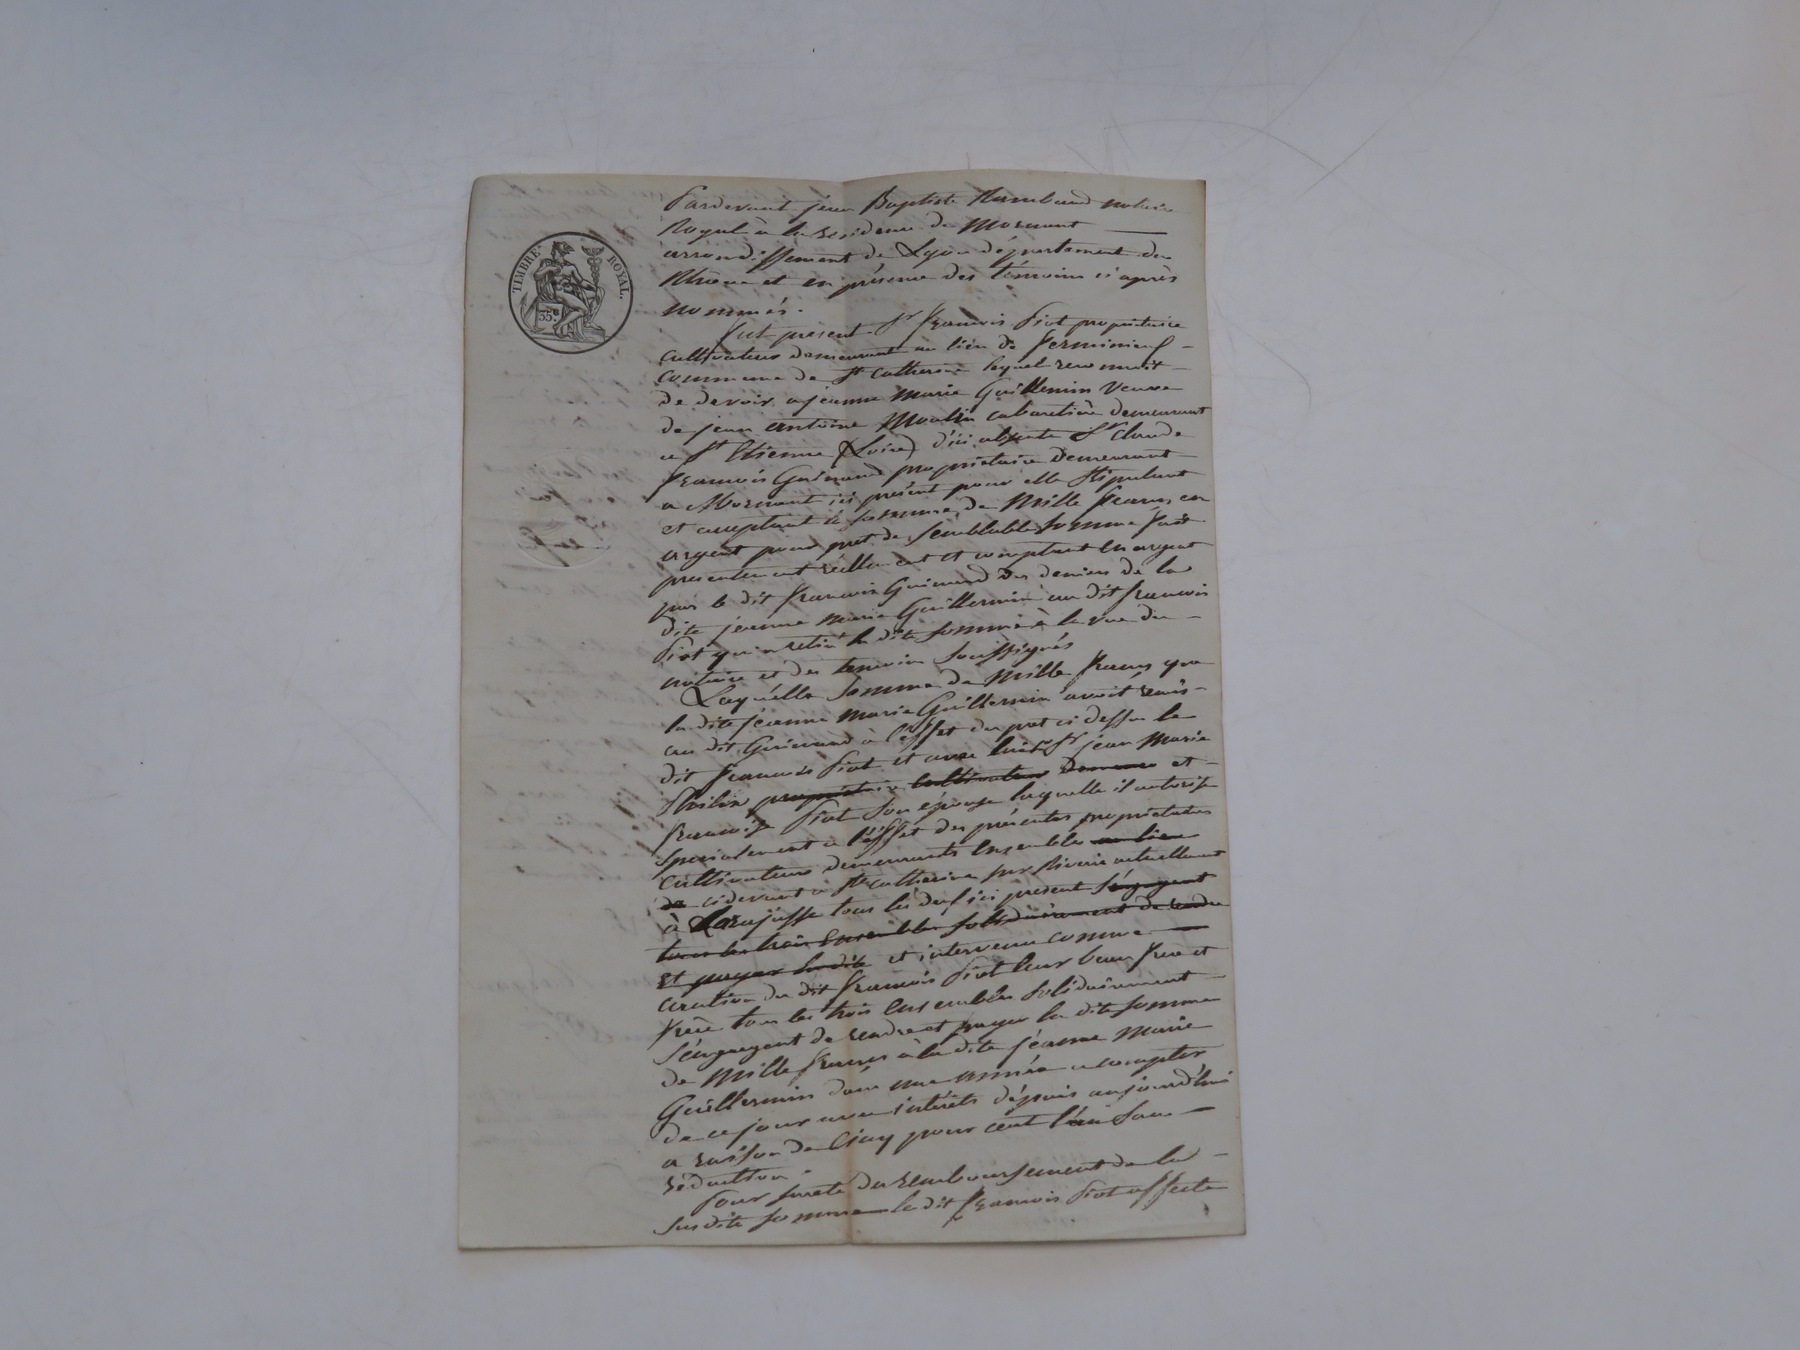 TIMBRE ROYAL.
35 c
Pardevant jean Baptiste Rambaud notaire
Royal à la residence de Mornant
arrondissement de Lyon département du
Rhône et en présence des témoins ci après
nommés.
fut present Sr francois Piot propriétaire
cultivateur demeurant au lieu de
commune de Ste Catherine lequel reconnoit
de devoir a jeanne marie Guillermin veuve
de jean antoine Moulin cabaretière demeurant
a St Etienne (Loire) d'ici absente Sr Claude
françois Guinand propriétaire demeurant
a Mornant ici présent pour elle stipulant
et acceptant la somme de Mille francs en
argent pour pret de semblable somme fait
presentement réellement et comptant en argent
par le dit francois Guinand des deniers de la
dite jeanne marie Guillermin au dit francois
Piot qui a retiré la dite somme à la vue du
notaire et des temoins soussignés
Laquelle somme de Mille francs que
la dite jeanne marie Guillermin avoit remis
au dit Guinand à l'effet du pret ci dessus le
dit francois Piot et avec lui Sr jean Marie
propriétaire cultivateur et
francoise Piot son épouse laquelle il autorise
specialement a l'éffet des présentes propriétaires
cultivateurs demeurants ensembles au lieu
de ci devant a Ste catherine sur Riverie actuellement
à Larajasse tous les deux ici present s'engagent
tous les trois ensembles solidairement de rendre
et payer la dite et intervenu comme
caution du dit francois Piot leur beau frere et
frère tous les trois ensembles solidairement
s'engagent de rendre et payer la dite somme
de Mille francs à la dite jeanne Marie
Guillermin dans une année a compter
de ce jour avec intérêts dépuis aujourd'hui
a raison de Cinq pour cent l'an sans
réduction
Pour sureté du remboursement de la
susdite somme le dit francois Piot affecte